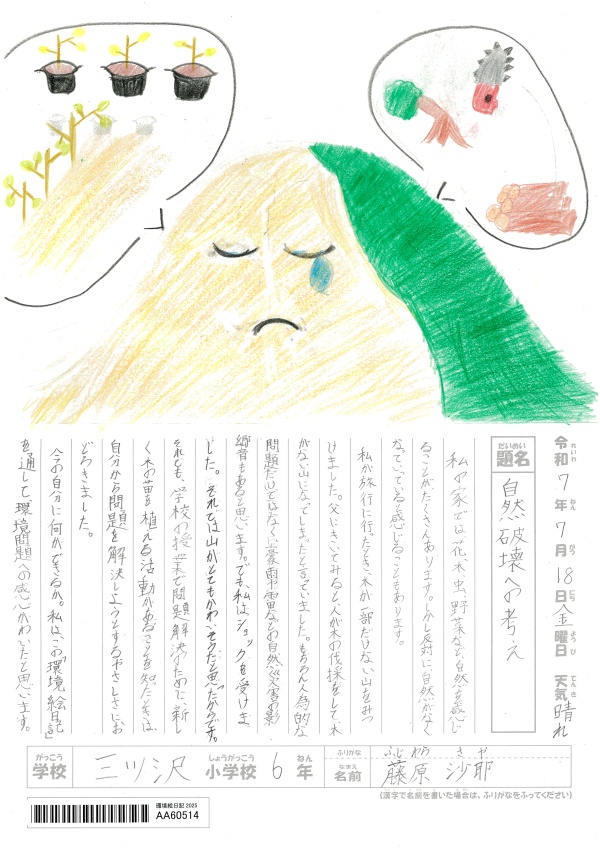 令和7年7月18日金曜日 天気 晴れ
れいわ ねん がつ にち ようび てんき
だいめい
題名 自然破壊への考え
私の家では、花、木、虫、野菜など自然を感じ
ることがたくさんあります。しかし反対に自然がなく
なっていっていると感じることもあります。
私が旅行に行ったとき、木が一部だけない山をみつ
けました。父にきいてみると、人が木の伐採をして、木
がない山になってしまったと言っていました。もちろん人為的な
問題だけではなく、豪雨や雷などの自然災害の影
響もあると思います。でも、私はショックを受けま
した。それでは山がとてもかわいそうだと思ったからです。
それとも、学校の授業で問題解決のために、新し
く木の苗を植える活動があることを知ったときは、
自分から問題を解決しようとするやさしさにお
どろきました。
今の自分に何ができるか。私は、この「環境絵日記」
を通して、環境問題への関心がわいたと思います。
がっこう しょうがっこう ねん
学校 三ツ沢 小学校 6年
ふりがな ふじわら さや
なまえ
名前 藤原 沙耶
(漢字で名前を書いた場合は、ふりがなをふってください)
環境絵日記 2025
AA60514